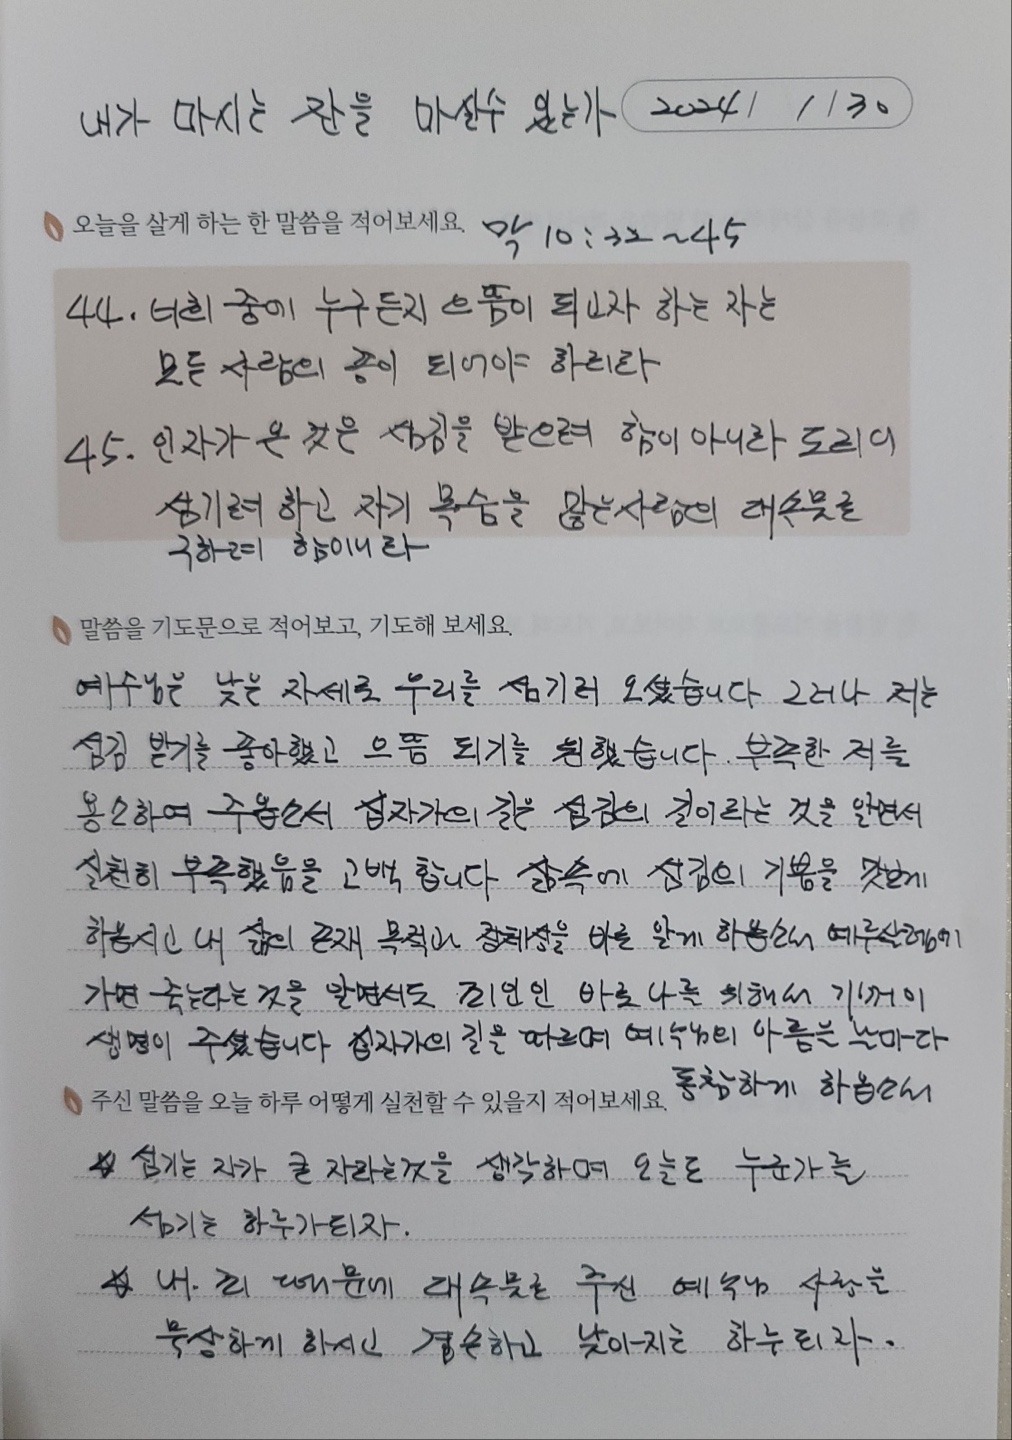 내가 마시는 잔을 마실수 있는가 2024/ 1/30
오늘을 살게 하는 한 말씀을 적어보세요. 막 10:32~45
44. 너희 중에 누구든지 으뜸이 되고자 하는 자는
모든 사람의 종이 되어야 하리라
45. 인자가 온 것은 섬김을 받으려 함이 아니라 도리어
섬기려 하고 자기 목숨을 많은 사람의 대속물로
주하려 함이니라
말씀을 기도문으로 적어보고, 기도해 보세요.
예수님은 낮은 자세로 우리를 섬기러 오셨습니다 그러나 저는
섬김 받기를 좋아했고 으뜸 되기를 원했습니다. 부족한 저를
용서하여 주옵소서 십자가의 길은 섬김의 길이라는 것을 알면서
실천히 부족했음을 고백 합니다 삶속에 섬김의 기쁨을 맛보게
하옵시고 내 삶의 존재 목적과 정체성을 바로 알게 하옵소서 예루살렘에
가면 죽는다는 것을 알면서도 죄인인 바로 나를 위해서 기꺼이
생명이 주셨습니다 십자가의 길을 따르며 예수님의 아픔을 날마다
동참하게 하옵소서
주신 말씀을 오늘 하루 어떻게 실천할 수 있을지 적어보세요.
☆ 섬기는 자가 큰 자라는것을 생각하며 오늘도 누군가를
섬기는 하루가되자.
☆ 내. 죄 때문에 대속물로 주신 예수님 사랑을
묵상하게 하시고 겸손하고 낮아지는 하루되자.